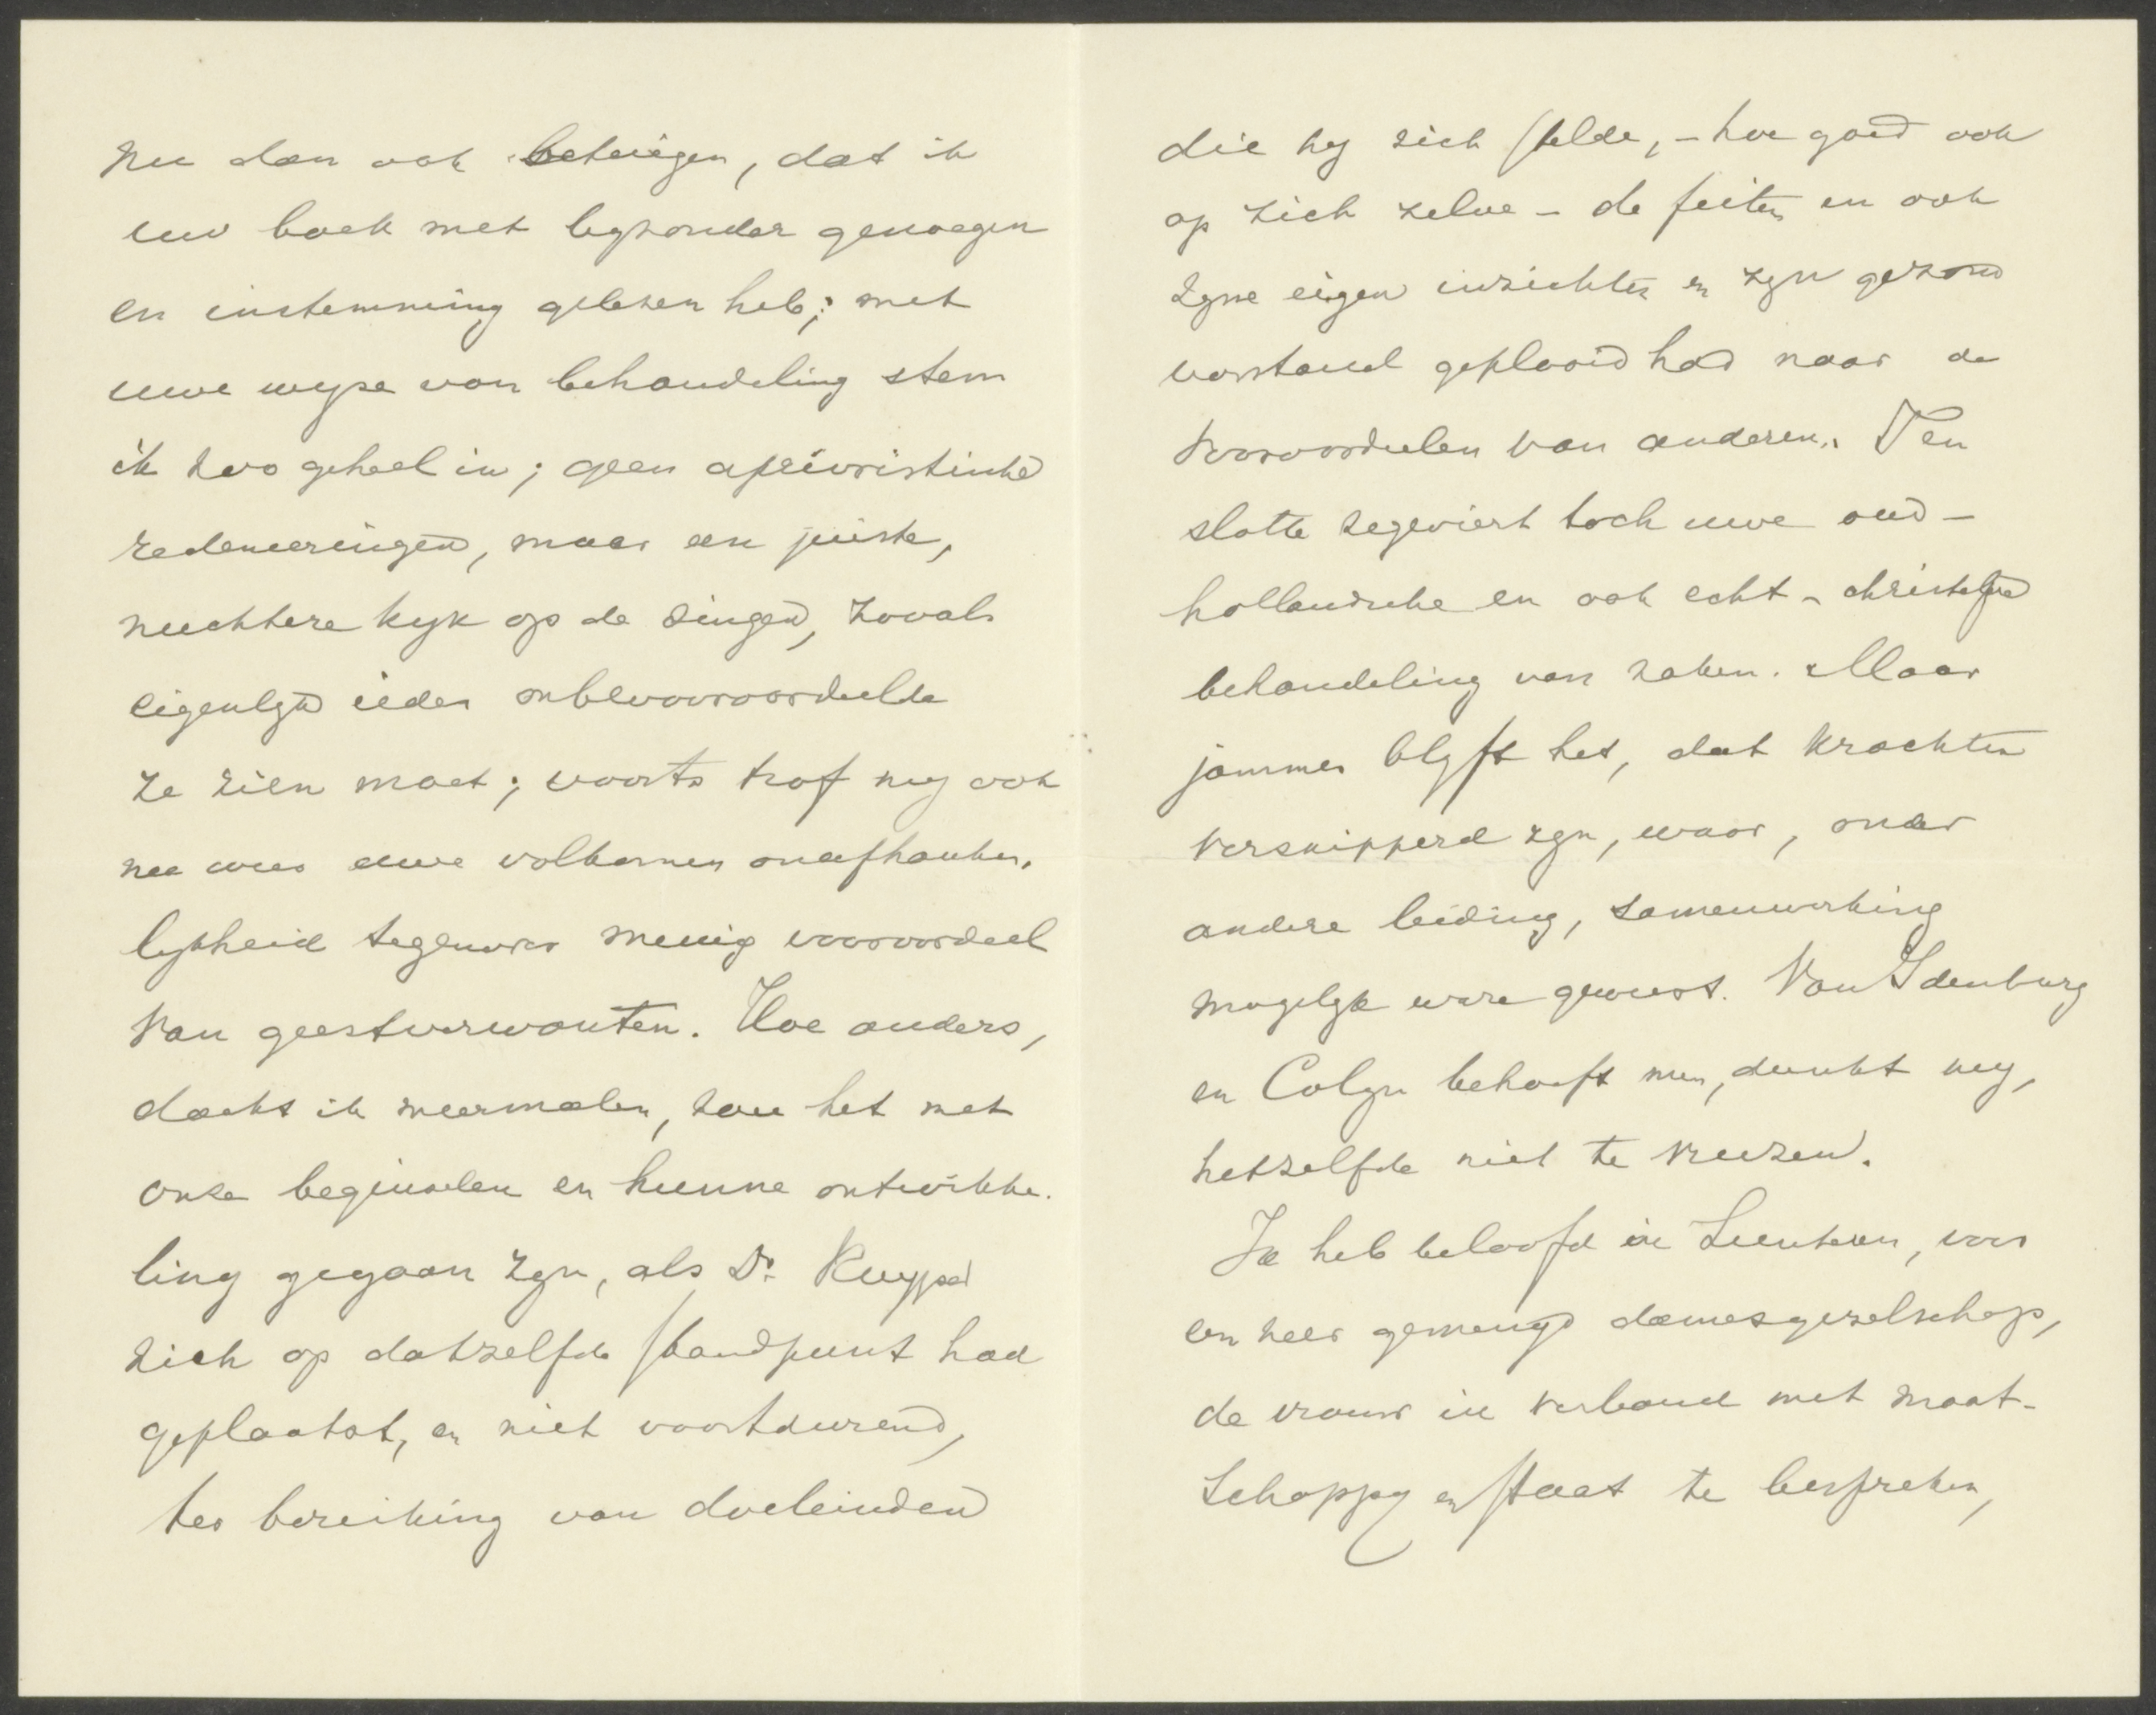 nu dan ook betuigen, dat ik
uw boek met byzonder genoegen
en instemming gelezen heb; met
uwe wyze van behandeling stem
ik zoo geheel in; geen aprioristische
redeneeringen, maar een juiste,
nuchtere kyk op de dingen, zooals
eigenlyk ieder onbevooroordeelde
ze zien moet; voorts trof my ook
nu weer uwe volkomen onafhanke-
lykheid tegenover menig vooroordeel
van geestverwanten. Hoe anders,
dacht ik meermalen, zou het met
onze beginselen en hunne ontwikke-
ling gegaan zyn, als Dr. Kuyper
zich op datzelfde standpunt had
geplaatst, en niet voortdurend,
ter bereiking van doeleinden
die hy zich stelde, - hoe goed ook
op zich zelve - de feiten en ook
zyne eigen inzichten en zyn gezond
verstand geplooid had naar de
vooroordeelen van anderen. Ten
slotte zegeviert toch uwe oud-
hollandsche en ook echt-christelyke
behandeling van zaken. Maar
jammer blyft het, dat krachten
versnipperd zyn, waar, onder
andere leiding, samenwerking
mogelyk ware geweest. Van Idenburg
en Colyn behoeft men, dunkt my,
hetzelfde niet te vreezen.
Ik heb beloofd in Lunteren, voor
een zeer gemengd damesgezelschap,
de vrouw in verband met maat-
schappy en staat te bespreken,